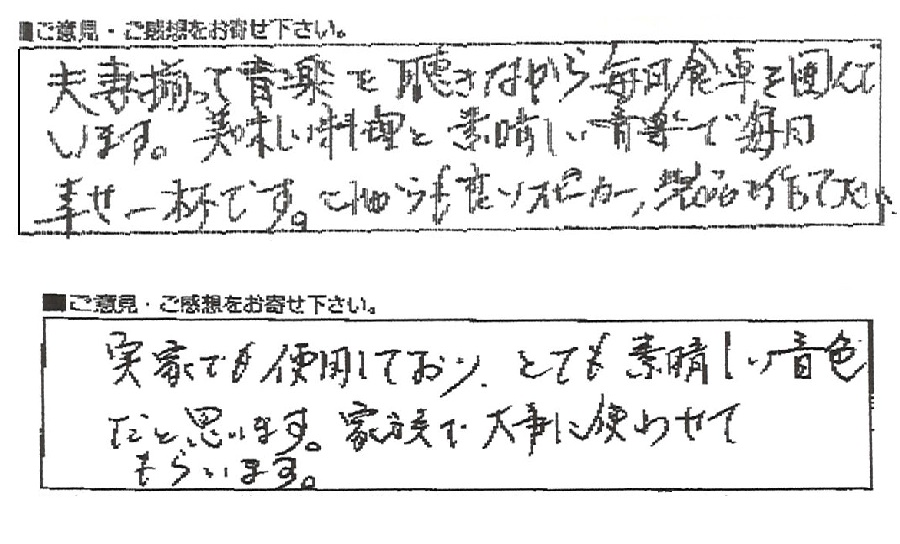 ■ご意見・ご感想をお寄せ下さい。
夫妻揃って音楽を聴きながら毎日食卓を囲んで
います。美味しい料理と素晴しい音楽で毎日
幸せ一杯です。これからも良いスピーカー、製品を作って下さい
■ご意見・ご感想をお寄せ下さい。
実家でも使用しており、とても素晴しい音色
だと思います。家族で大事に使わせて
もらいます。